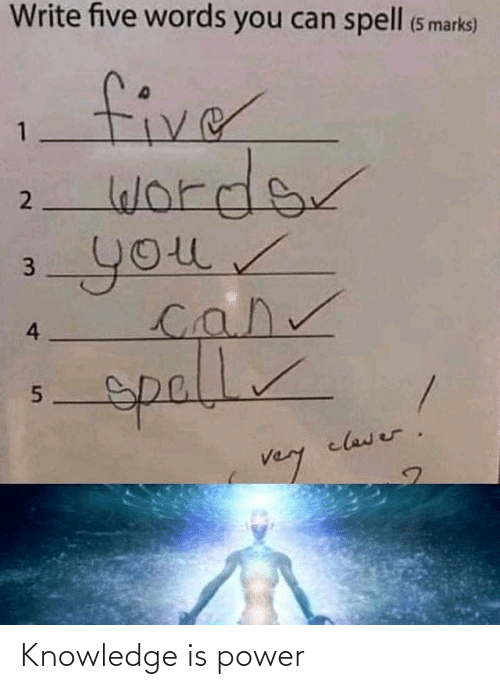 Write five words you can spell (5 marks)
1 five ✓
2 words ✓
3 you ✓
4 can ✓
5 spell ✓
very clever !
Knowledge is power